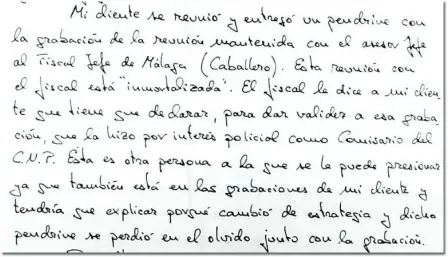 Mi cliente se reunió y entregó un pendrive con
la grabación de la reunión mantenida con el asesor Jefe
al Fiscal Jefe de Málaga (Caballero). Esta reunión con
el fiscal está "inmortalizada". El fiscal le dice a mi clien-
te que tiene que declarar, para dar validez a esa graba-
ción, que la hizo por interés policial como Comisario del
C.N.P. Esta es otra persona a la que se le puede presionar
ya que también está en las grabaciones de mi cliente y
tendría que explicar porqué cambió de estrategia y dicho
pendrive se perdió en el olvido junto con la grabación.